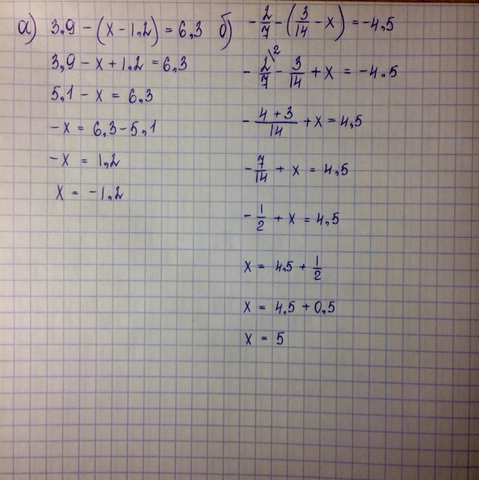 а) 3.9 - (x - 1.2) = 6,3
3,9 - x + 1.2 = 6,3
5.1 - x = 6.3
-x = 6.3 - 5,1
-x = 1,2
x = -1.2
б) -2/7 - (3/14 - x) = -4,5
-2/7\2 - 3/14 + x = -4.5
-(4+3)/14 + x = 4,5
-7/14 + x = 4,5
-1/2 + x = 4,5
x = 4.5 + 1/2
x = 4,5 + 0.5
x = 5